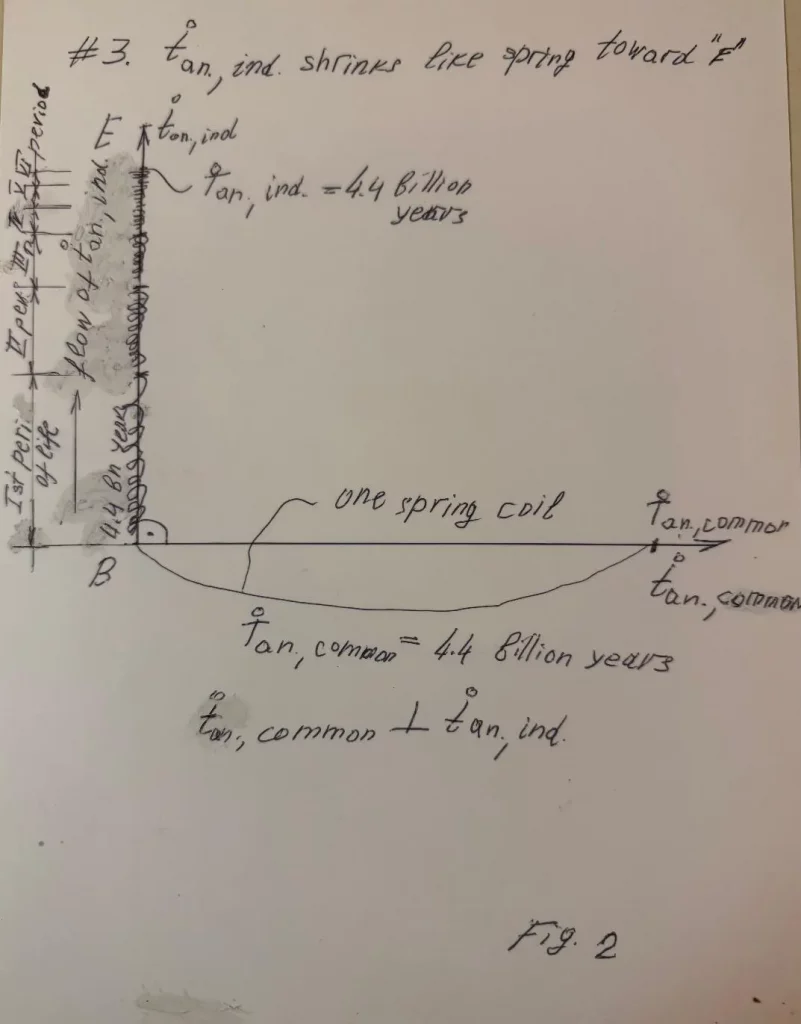 #3. t̊an., ind. shrinks like spring toward "E"
E
t̊an., ind
T̊an., ind. = 4.4 Billion
years
period
flow of t̊an., ind.
II per.
Ist peri.
of life
4.4 Bn years
one spring coil
B
T̊an., common
t̊an., common
T̊an., common = 4.4 Billion years
t̊an., common ⊥ t̊an., ind.
Fig. 2